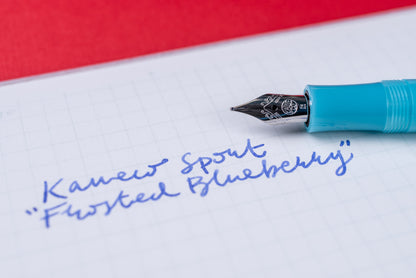 Kaweco Sport
"Frosted Blueberry"